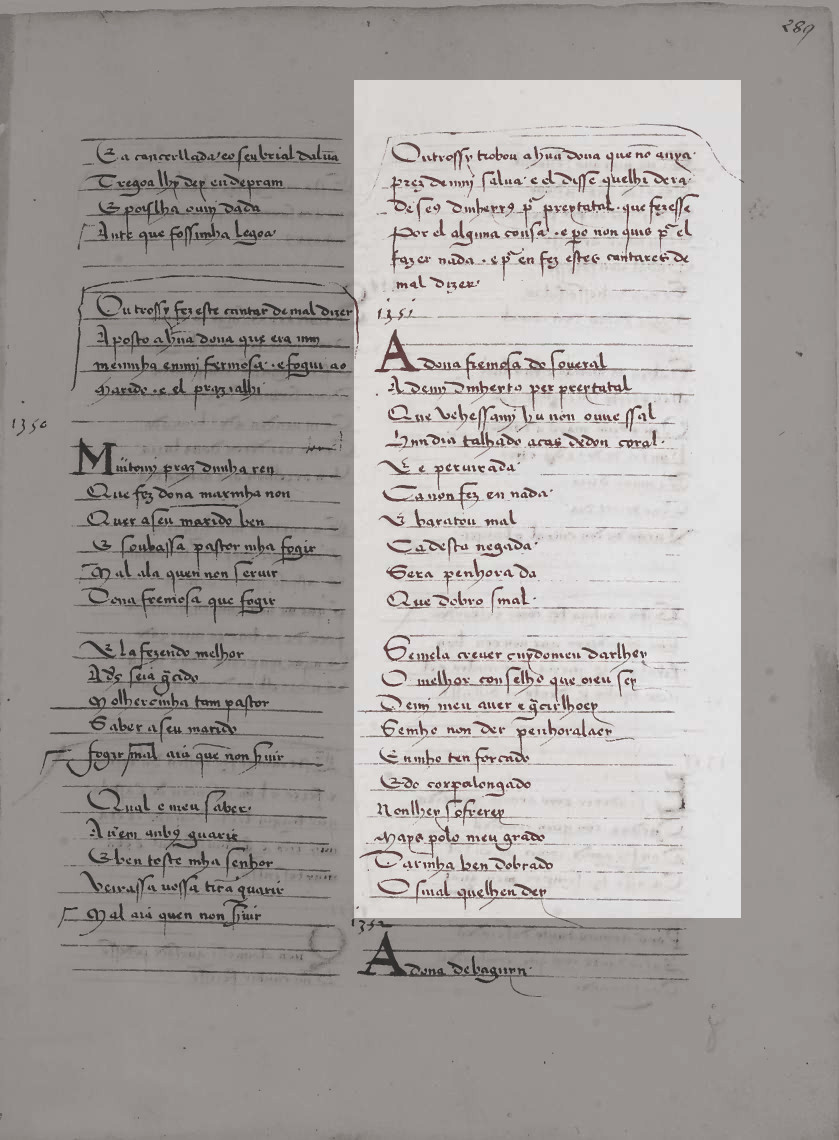 289
E a cancerllada eo seu brial daluã
Tregoa lhj dey en depram
E poys lha ouuj dada
Ante que fossimha legoa
Outrossy fez este cantar de mal dizer
Aposto a hũa dona que era muj
meninha enmj fermosa . e fogiu ao
marido . e el prazialhi
1350
Muitomj praz dunha ren
Que fez dona marinha non
Quer aseu marido ben
E soubassa pastor mha fogir
Mal ala quen non seruir
Dona fremosa que fogir
E la fezendo melhor
Ads seia gcido
Molhercinha tam pastor
Saber aseu marido
fogir mal aia que non suir
Qual e meu saber
E ben toste mha senhor
Veirassa uossa tira guarir
Mal aia quen non suir
Outrossy trobou a hũa dona que nõ auya
prez demuj salua e el disse quelhi dera
De ses dinheyrs pa preytatal . que fezesse
Por el alguna cousa . e po non quis pa el
fazer nada . e pa en fez estes cantares de
mal dizer
1351
A dona fremosa do soueral
A demj dinheyro per preytatal
Que uehessamj hu non ouue ssal
Hun dia talhado acas dedon coral
E e periurada
Ca non fez en nada
E baratou mal
Ca desta negada
Sera penhorada
Que dobro smal
Semela creuer cuydomeu darlhey
O melhor conselho que oieu sey
Demj meu auer e gcirlhoey
Semho non der penhoralaey
Cu mho ten forcado
E do corpalongado
Nonlhey sofrerey
Mays polo meu grado
Darmha ben dobrado
O smal quelhen dey
1352
A dona debaguyn